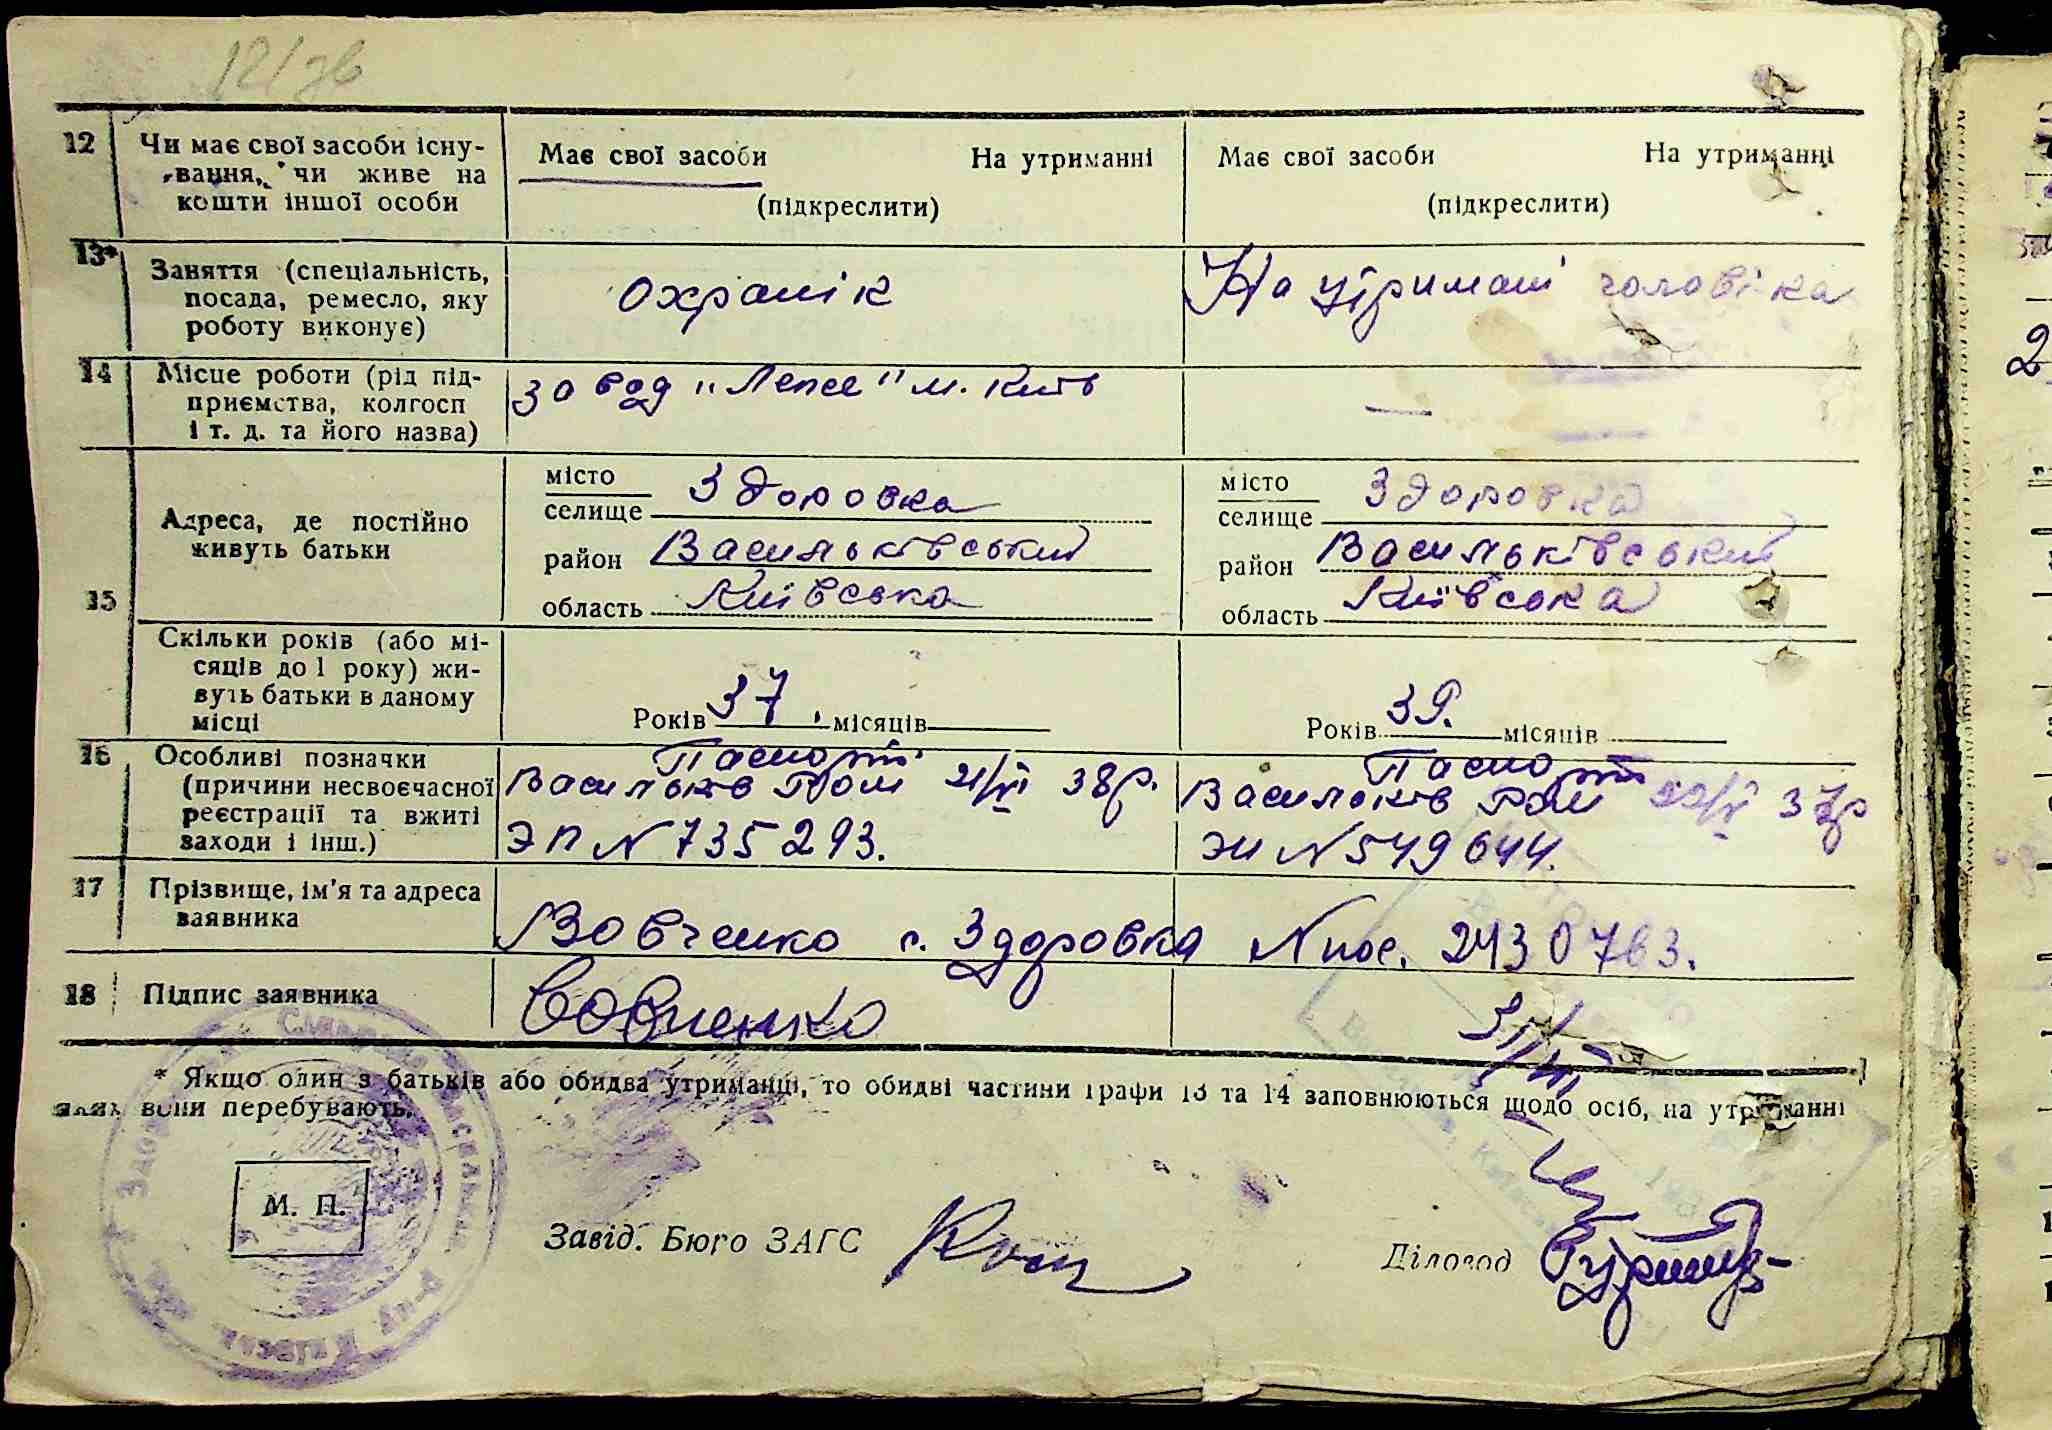 12/зв
12 Чи має свої засоби існу- Має свої засоби На утриманні Має свої засоби На утриманні
вання, чи живе на
кошти іншої особи (підкреслити) (підкреслити)
13* Заняття (спеціальність,
посада, ремесло, яку охранік На утримані чоловіка
роботу виконує)
14 Місце роботи (рід під- завод „Лепсе" м. Київ —
приємства, колгосп
і т. д. та його назва)
15 Адреса, де постійно
живуть батьки
місто
селище Здоровка
район Васильківський
область Київська
місто
селище Здоровка
район Васильківський
область Київська
Скільки років (або мі-
сяців до 1 року) жи-
вуть батьки в даному
місці
Років 37. місяців
Років 39. місяців
16 Особливі позначки
(причини несвоєчасної
реєстрації та вжиті
заходи і інш.)
Паспорт
Васильків 21/VI 38р.
ЭП N 735293.
Паспорт
Васильків 37р
ЭИ N 549644.
17 Прізвище, ім'я та адреса
заявника
Вовченко с. Здоровка N 2430763.
18 Підпис заявника Вовченко
* Якщо один з батьків або обидва утриманці, то обидві частини графи 13 та 14 заповнюються щодо осіб, на утриманні
яких вони перебувають.
М. П.
Завід. Бюро ЗАГС
Діловод